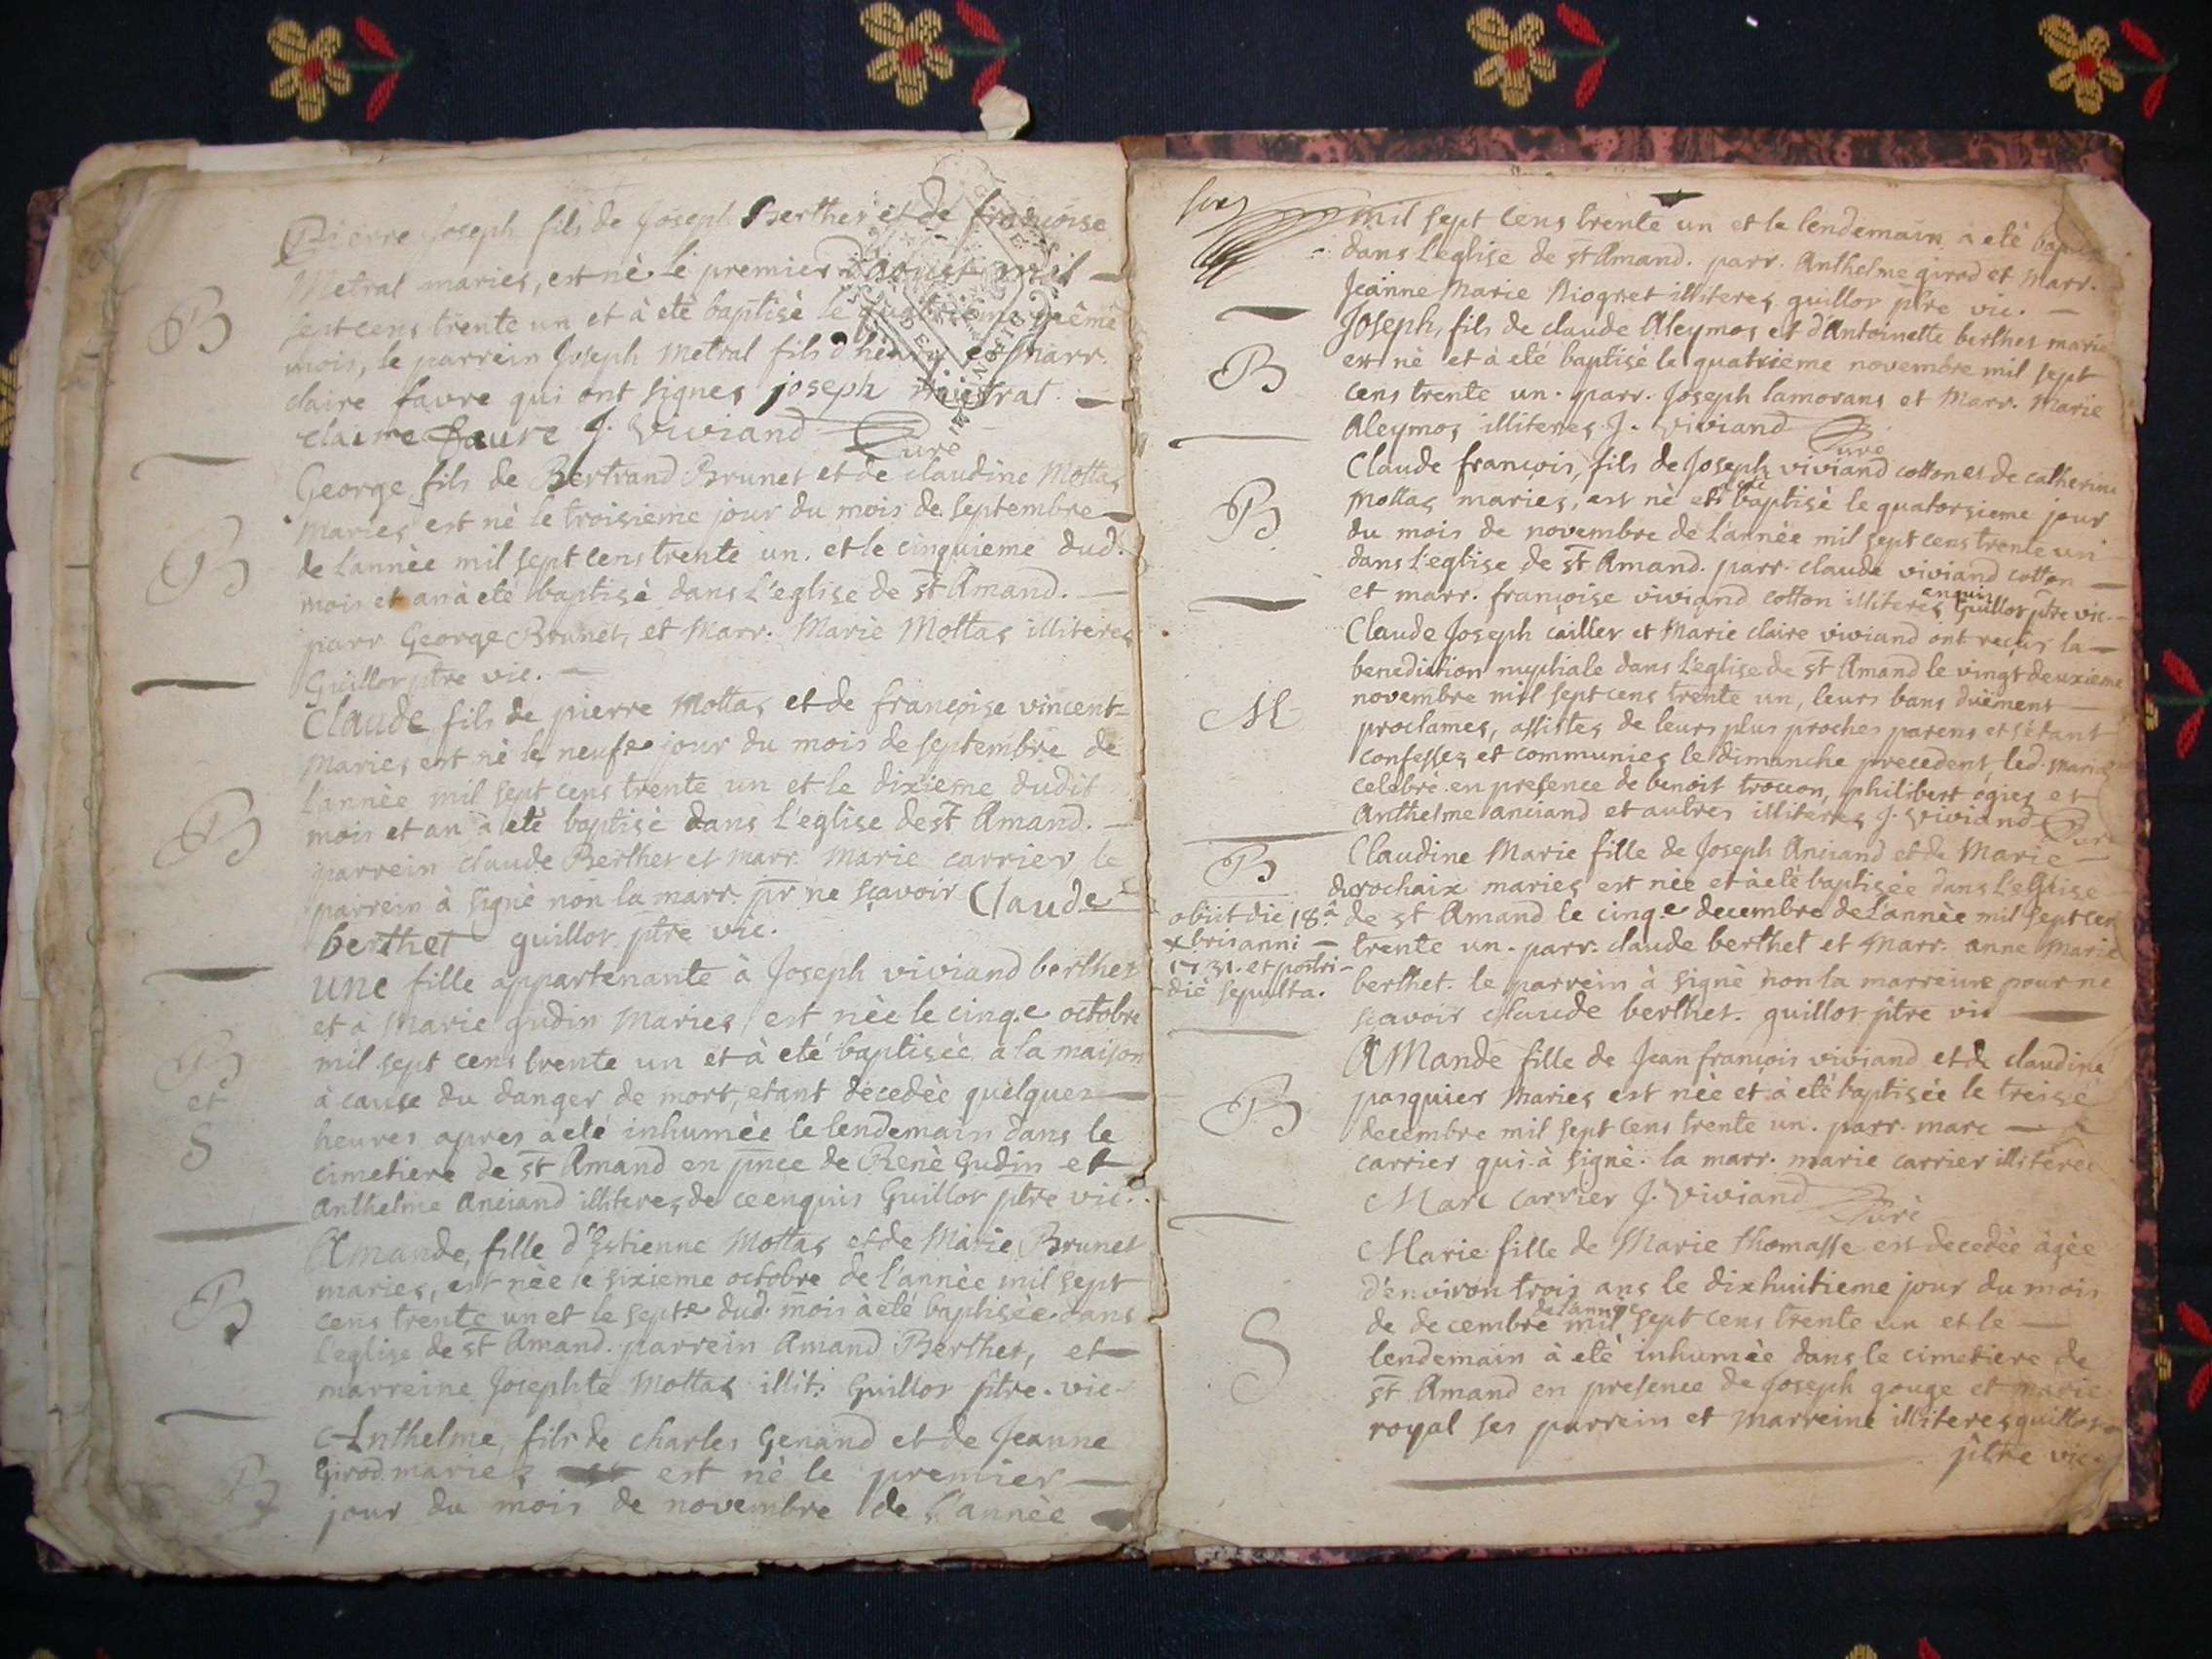 Pierre Joseph fils de Joseph Berthet et de françoise
Metral mariés, est nè le premier d'aoust mil
sept cens trente un et à eté baptisè le quatrième même
mois, le parrein Joseph Metral fils d'henry et marr.
claire favre qui ont signes joseph mietrat
B
claire faure J. Viviand Curé
George fils de Bertrand Brunet et de claudine Mottas
Maries est nè le troisieme jour du mois de septembre
de l'annèe mil sept cens trente un. et le cinquieme dud.
mois et an à eté baptisè dans l'eglise de st Amand.
parr George Brunet, et Marr. Marie Mottas illiteres
Guillot ptre vic.
B
Claude fils de pierre Mottas et de françoise vincent
Maries est nè le neufe jour du mois de septembre de
l'annèe mil sept cens trente un et le dixieme dudit
mois et an a eté baptisè dans l'eglise de st Amand.
parrein claude Berthet et marr. marie carrier, le
parrein à signè non la marr. pr ne sçavoir Claude
berthet guillot ptre vic.
B
une fille appartenante à Joseph viviand berthet
et à Marie gudin Maries, est nèe le cinqe octobre
mil sept cens trente un et à eté baptisèe à la maison
à cause du danger de mort, etant decedèe quelques
heures apres à eté inhumèe le lendemain dans le
cimetiere de st Amand en pnce de Renè Gudin et
Anthelme Anciand illiteres de ce enquis Guillot ptre vic.
B
et
S
Amande, fille d'Estienne Mottas et de Marie Brunet
maries, est nèe le sixieme octobre de l'annèe mil sept
cens trente un et le septe dud. mois à eté baptisèe dans
l'eglise de st Amand. parrein Amand Berthet, et
marreine Josephte Mottas illit: Guillot ptre. vic.
B
Anthelme, fils de charles Genand et de Jeanne
Girod maries est nè le premier
jour du mois de novembre de l'annèe
B
mil sept cens trente un et le lendemain à eté
dans l'eglise de st Amand. parr. Anthelme girod et Marr.
Jeanne Marie Riogret illiteres guillot ptre vic.
Joseph, fils de claude Aleymos et d'Antoinette berthet marie
est nè et à eté baptisè le quatrieme novembre mil sept
cens trente un. parr. Joseph lamorans et Marr. Marie
Aleymos illiteres J. Viviand Curé
B
Claude françois, fils de Joseph viviand cotton et de catherine
Mottas maries, est nè et à eté baptisè le quatorsieme jour
du mois de novembre de l'annèe mil sept cens trente un
dans l'eglise de st Amand. parr. claude viviand cotton
et marr. françoise viviand cotton illiteres enquis Guillot ptre vic.
B
Claude Joseph cailler et Marie claire viviand ont recus la
benediction nuptiale dans l'eglise de st Amand le vingt deuxieme
novembre mil sept cens trente un, leurs bans duëment
proclames, assistes de leurs plus proches parens et s'étant
confessez et communies le dimanche precedent, led. mariage
celebré en presence de benoit trocon, philibert ogier et
Anthelme anciand et autres illiteres J. Viviand Curé
M
Claudine Marie fille de Joseph Anciand et de Marie
durochaix maries est nèe et à eté baptisèe dans l'eglise
de st Amand le cinqe decembre de l'annèe mil sept cen
trente un. parr. claude berthet et Marr. anne Marie
berthet. le parrein à signè non la marreine pour ne
sçavoir Claude berthet. guillot ptre vic
B
obiit die 18a
xbris anni
1731. et postri-
diè sepulta.
Amande fille de Jean françois viviand et de claudine
pasquier Maries est nèe et à eté baptisèe le treisè
decembre mil sept cens trente un. parr. marc
carrier qui à signè. la marr. marie carrier illiterèe
Marc carrier J. Viviand Curè
B
Marie fille de Marie thomasse est decedèe àgèe
d'environ trois ans le dixhuitieme jour du mois
de decembre de l'annèe mil sept cens trente un et le
lendemain à eté inhumèe dans le cimetiere de
st Amand en presence de Joseph gouge et marie
royal ses parrein et marreine illiteres guillot
ptre vic
S